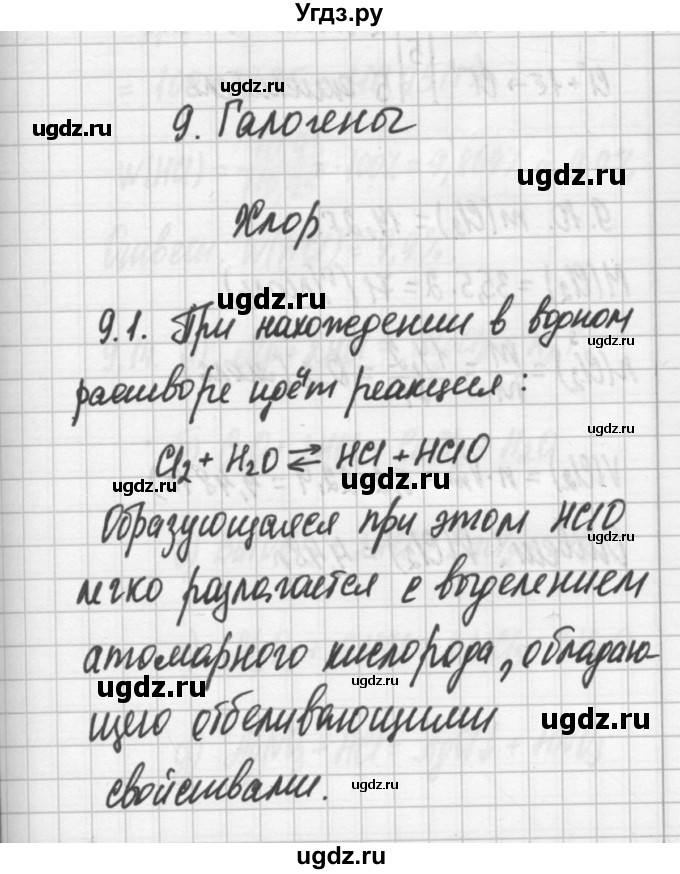 Угдз.ру
9. Галогены
Хлор
9.1. При нахождении в водном
растворе идёт реакция:
Cl₂ + H₂O ⇄ HCl + HClO
Образующаяся при этом HClO
легко разлагается с выделением
атомарного кислорода, обладаю-
щего отбеливающими
свойствами.
ugdz.ru
ugdz.ru
ugdz.ru
ugdz.ru
ugdz.ru
ugdz.ru
ugdz.ru
ugdz.ru
ugdz.ru
ugdz.ru
ugdz.ru
ugdz.ru
ugdz.ru
ugdz.ru